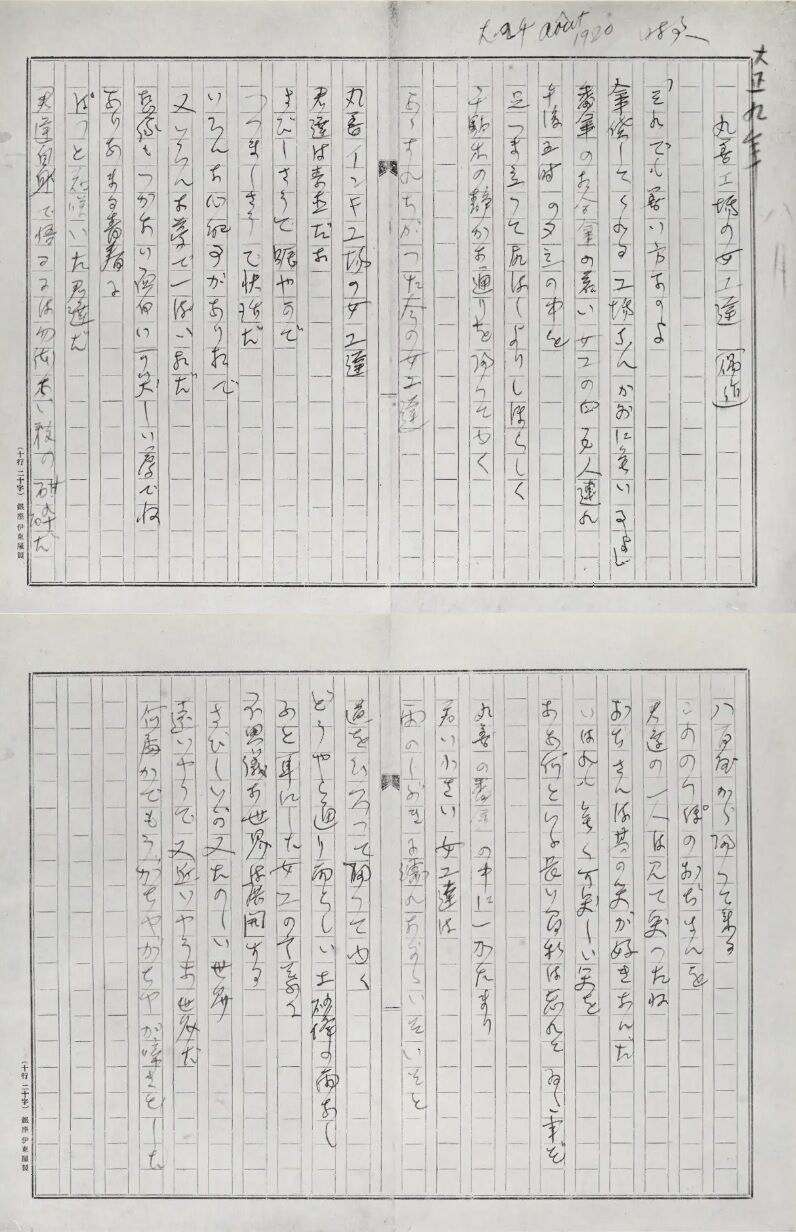 24 août 1920
大正九年
丸善工場の女工達（偽作）
「それでも善い方なのよ
番傘のお金の善い女工の四五人連れ
午後五時の夕立の中を
足つま立つて尻はしよりしほらしく
千駄木の静かな通りを帰つてゆく
すれちがつた今の女工達
丸善インキ工場の女工達
君達は素直だな
さびしさうで賑やかで
つつましさうで快活だ
いろんな心配事がありなで
又いろんな夢で一ぱいなだ
遠慮もつかない面白い可笑しい夢でね
ありあまる青春に
ぱつと花咲いた君達だ
君達自身で悟るには勿体ない程の
八百屋から帰つて来る
このつぽのおぢさんを
君達の一人は見て笑つたね
おぢさんは其の笑が好きなんだ
いはれ無く可笑しい笑を
ああ何といふ長い間私は忘れてゐた事だ
丸善の番傘の中に一かたまり
若い小さい女工達は
雨のしぶきに濡れながらいそいそと
道をひろつて帰つてゆく
どうやら通り雨らしい土砂降の雨あし
ふと耳にした女工の言葉に
不思議な世界は展開する
さびしいが又たのしい世界
遠いやうで又近いやうな世界だ
何處かでもうがちやがちやが啼き出した
(十行 二十字) 銀座 伊東屋製
(十行 二十字) 銀座 伊東屋製